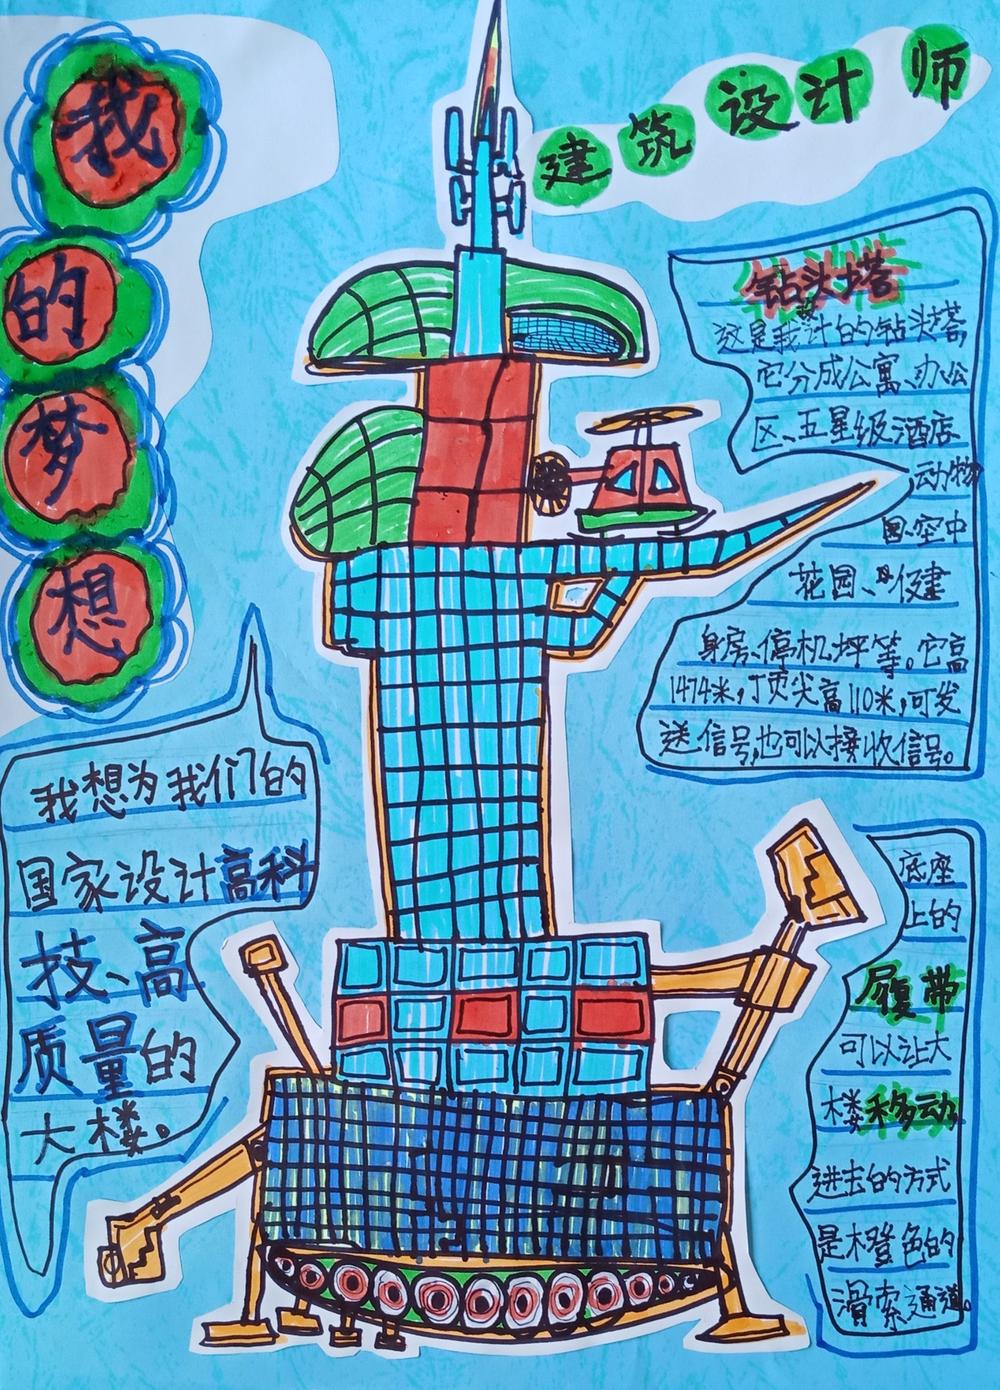 我的梦想
建筑设计师
钻头塔
这是我设计的钻头塔
它分成公寓、办公
区、五星级酒店
、动物
园、空中
花园、健
身房、停机坪等。它高
1474米，顶尖高110米，可发
送信号，也可以接收信号。
我想为我们的
国家设计高科
技、高
质量的
大楼。
底座
上的
履带
可以让大
楼移动
进去的方式
是橙色的
滑索通道。